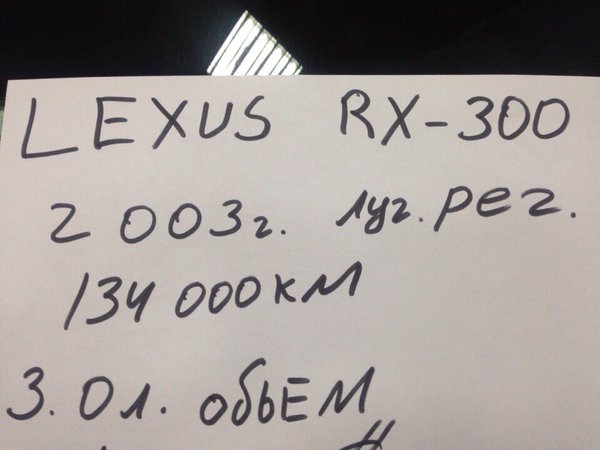 LEXUS RX-300
2003г. луг. рег.
134 000 км
3.0 л. обьЕМ